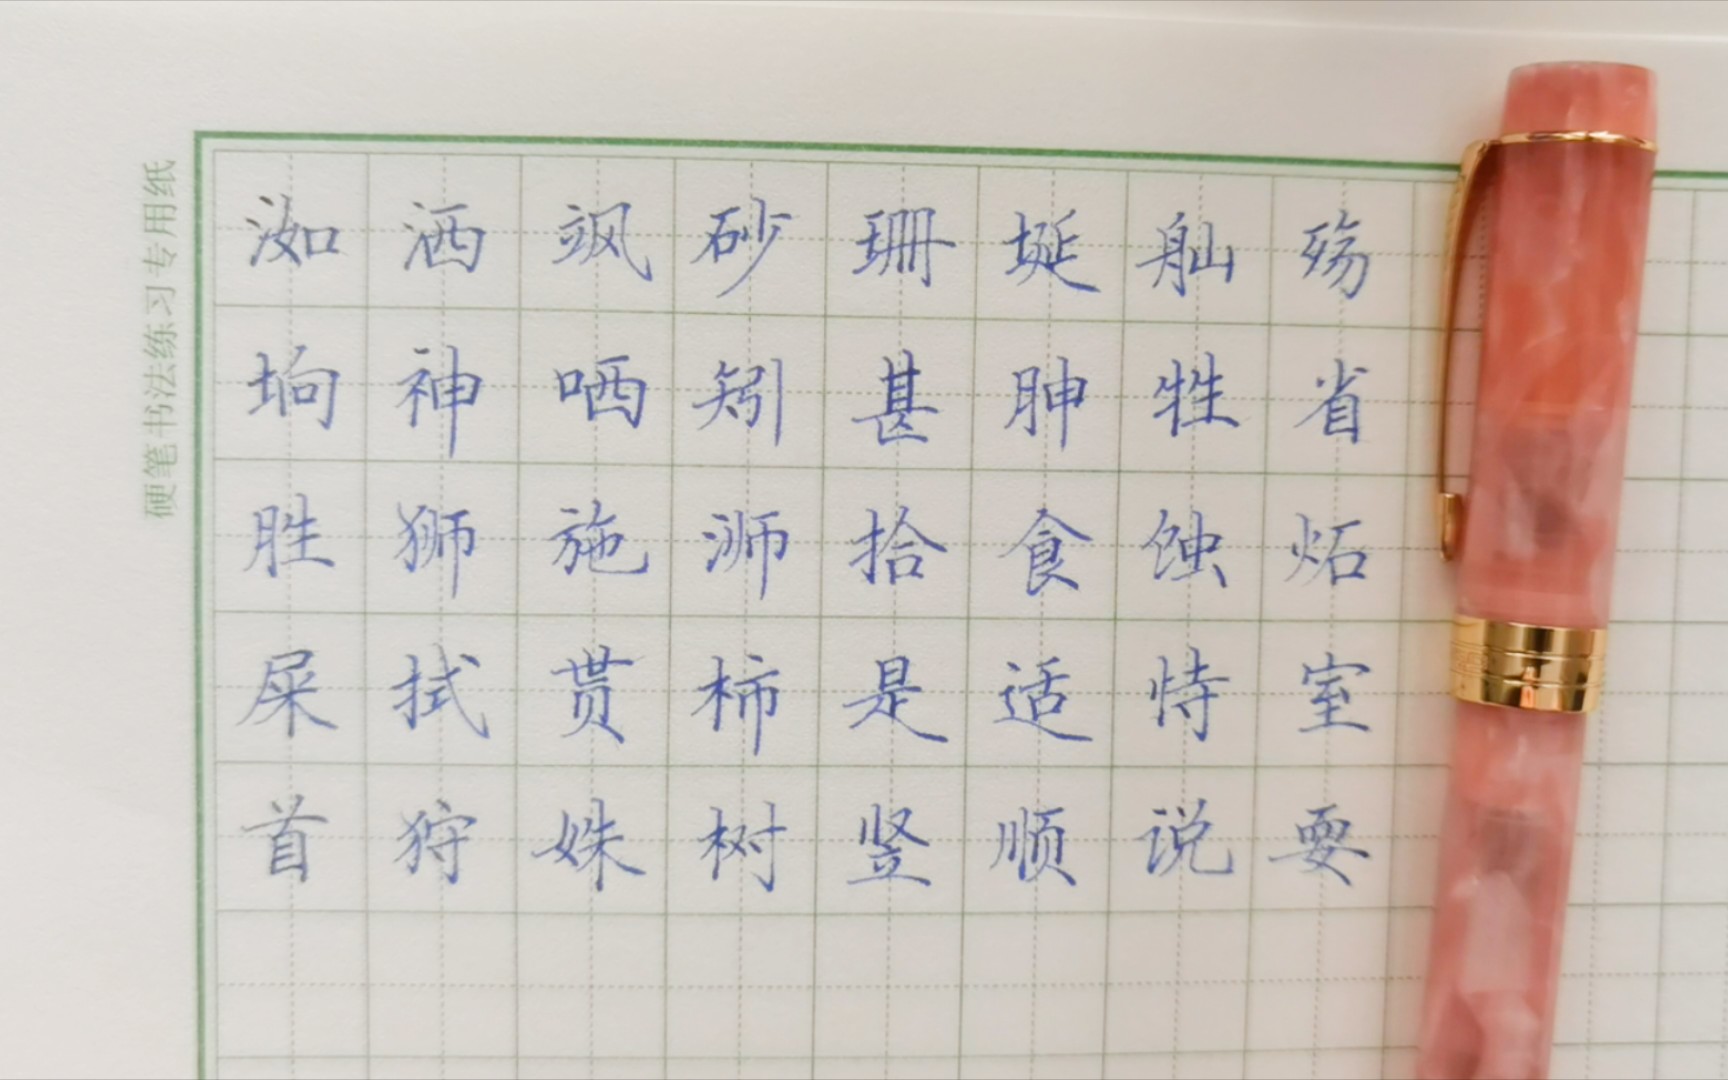 硬笔书法练习专用纸
洳洒飒砂珊埏舢殇
垧神哂矧甚胂牲省
胜狮施浉拾食蚀炻
屎拭贳柿是适恃室
首狩姝树竖顺说耍